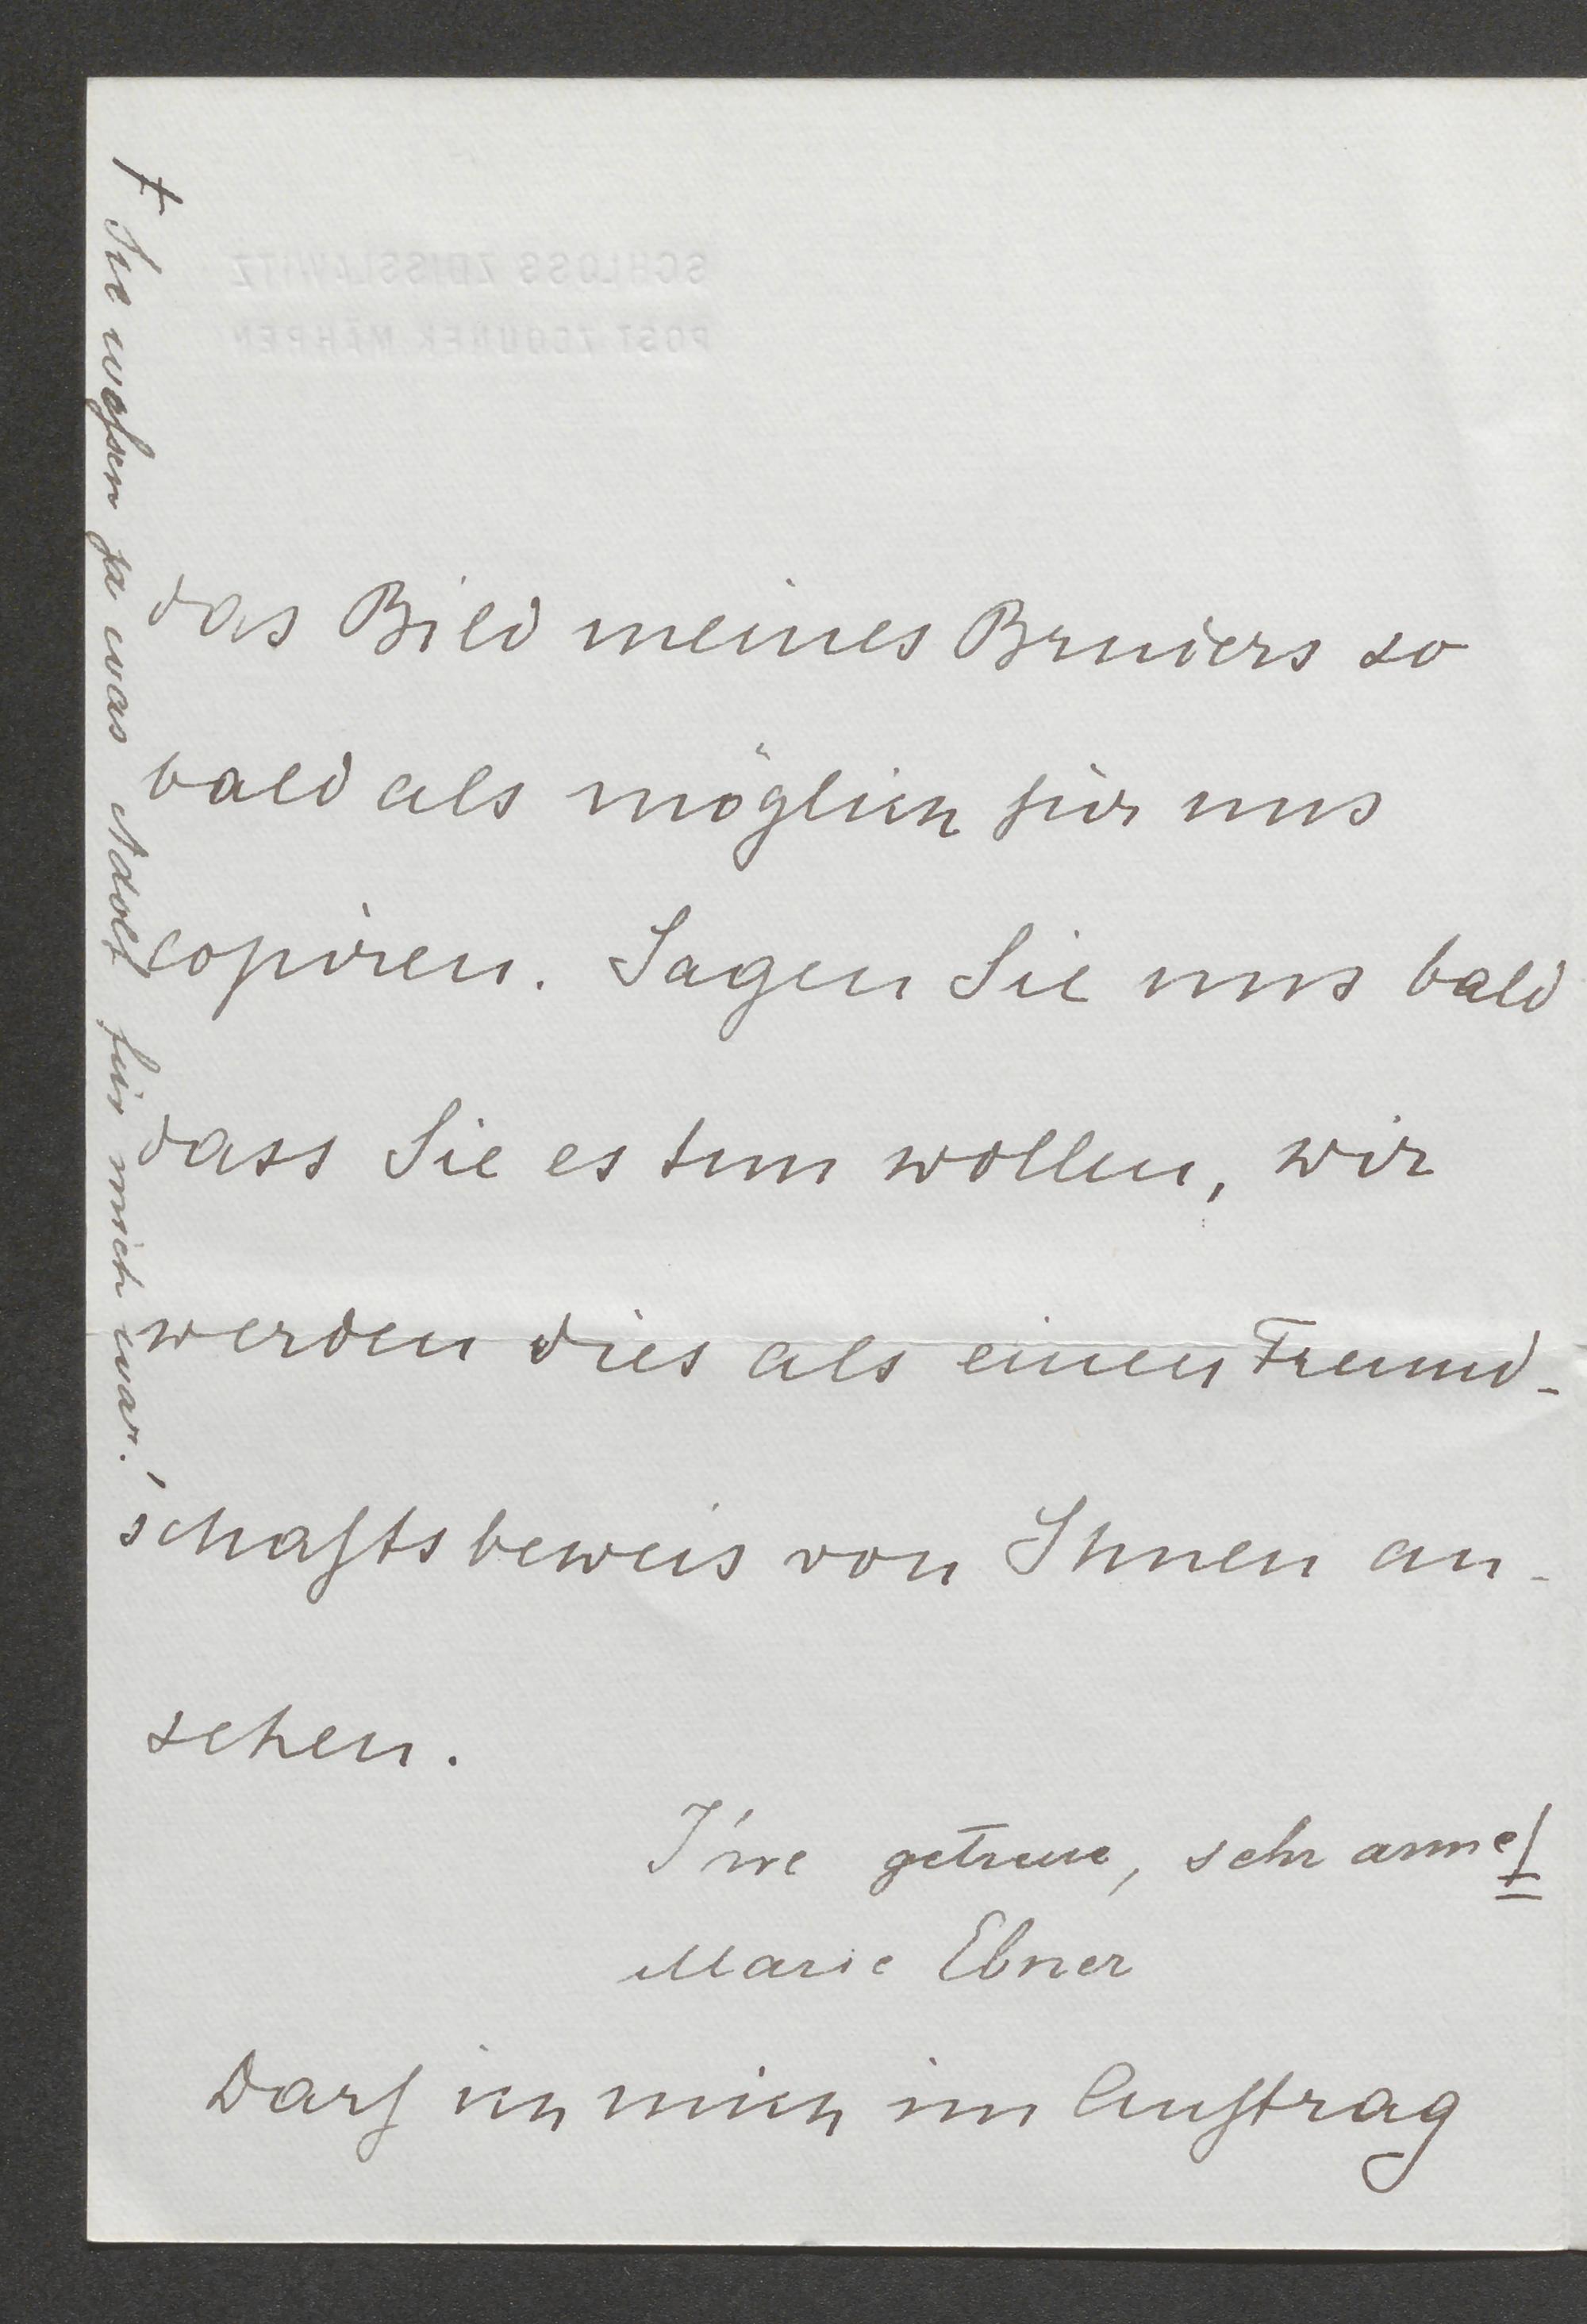 SCHLOSS ZDISSLAWITZ
POST ZDOUNEK MÄHREN
das Bild meines Bruders so
bald als möglich für uns
copiren. Sagen Sie uns bald
dass Sie es tun wollen, wir
werden dies als einen Freund-
schaftsbeweis von Ihnen an-
sehen.
Ihre getreue, sehr arme †
Marie Ebner
Darf ich mich im Auftrag
† Sie wissen ja was Adolf für mich war!